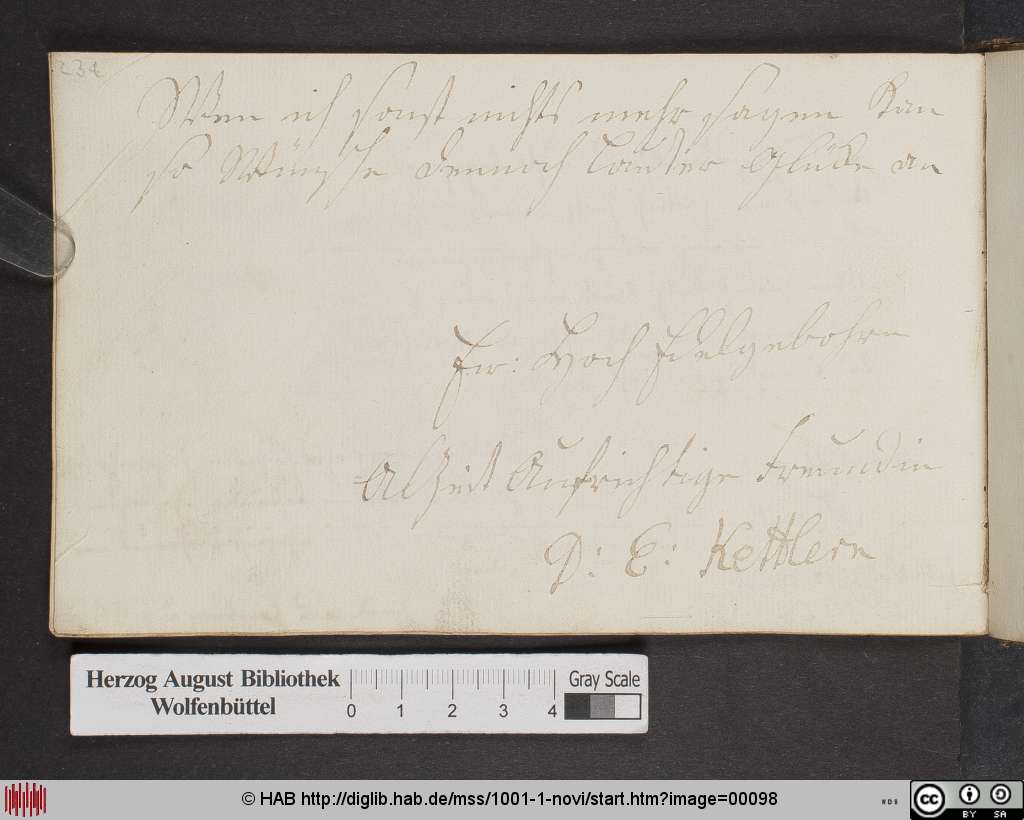 232
Wen ich sonst nichts mehr sagen Kan
so Wünsche dennoch lauter Glücke an
Ew: Hoch Edelgebohrn
Alzeit Aufrichtige Freundin
D: E: Kettlern
Herzog August Bibliothek
Wolfenbüttel
0 1 2 3 4
Gray Scale
© HAB http://diglib.hab.de/mss/1001-1-novi/start.htm?image=00098
cc BY SA